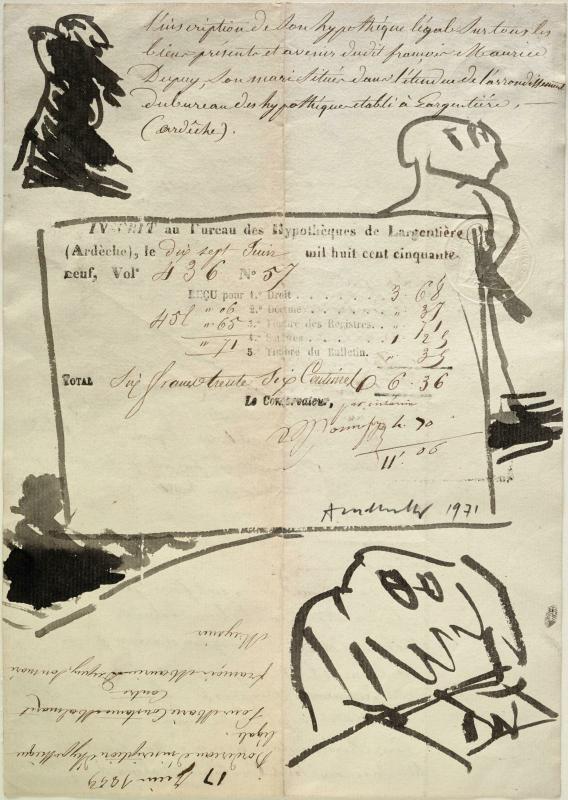 l'inscription de son hypothèque légale sur tous les
biens présents et avenir dudit françois Maurice
Dupuy, son mari situés dans l'étendue de l'arrondissement
du bureau des hypothèques établi à Largentière,
(ardèche).
INSCRIT au Bureau des Hypothèques de Largentière
(Ardèche), le dix sept Juin mil huit cent cinquante-
neuf, Vol 436 N° 57
REÇU pour 1.° Droit . . . . 3 68
2.° Décime
3.° Timbre des Registres. 71
4.° Salaires 1 25
5.° Timbre du Bulletin. 35
TOTAL Six francs trente six Centimes 6.36
Le Conservateur,
4.70
11.06
1971
17 Juin 1859
Bordereau d'inscription d'hypothèque
légale
Pour Marie Constance
Contre
françois Maurice Dupuy, son mari